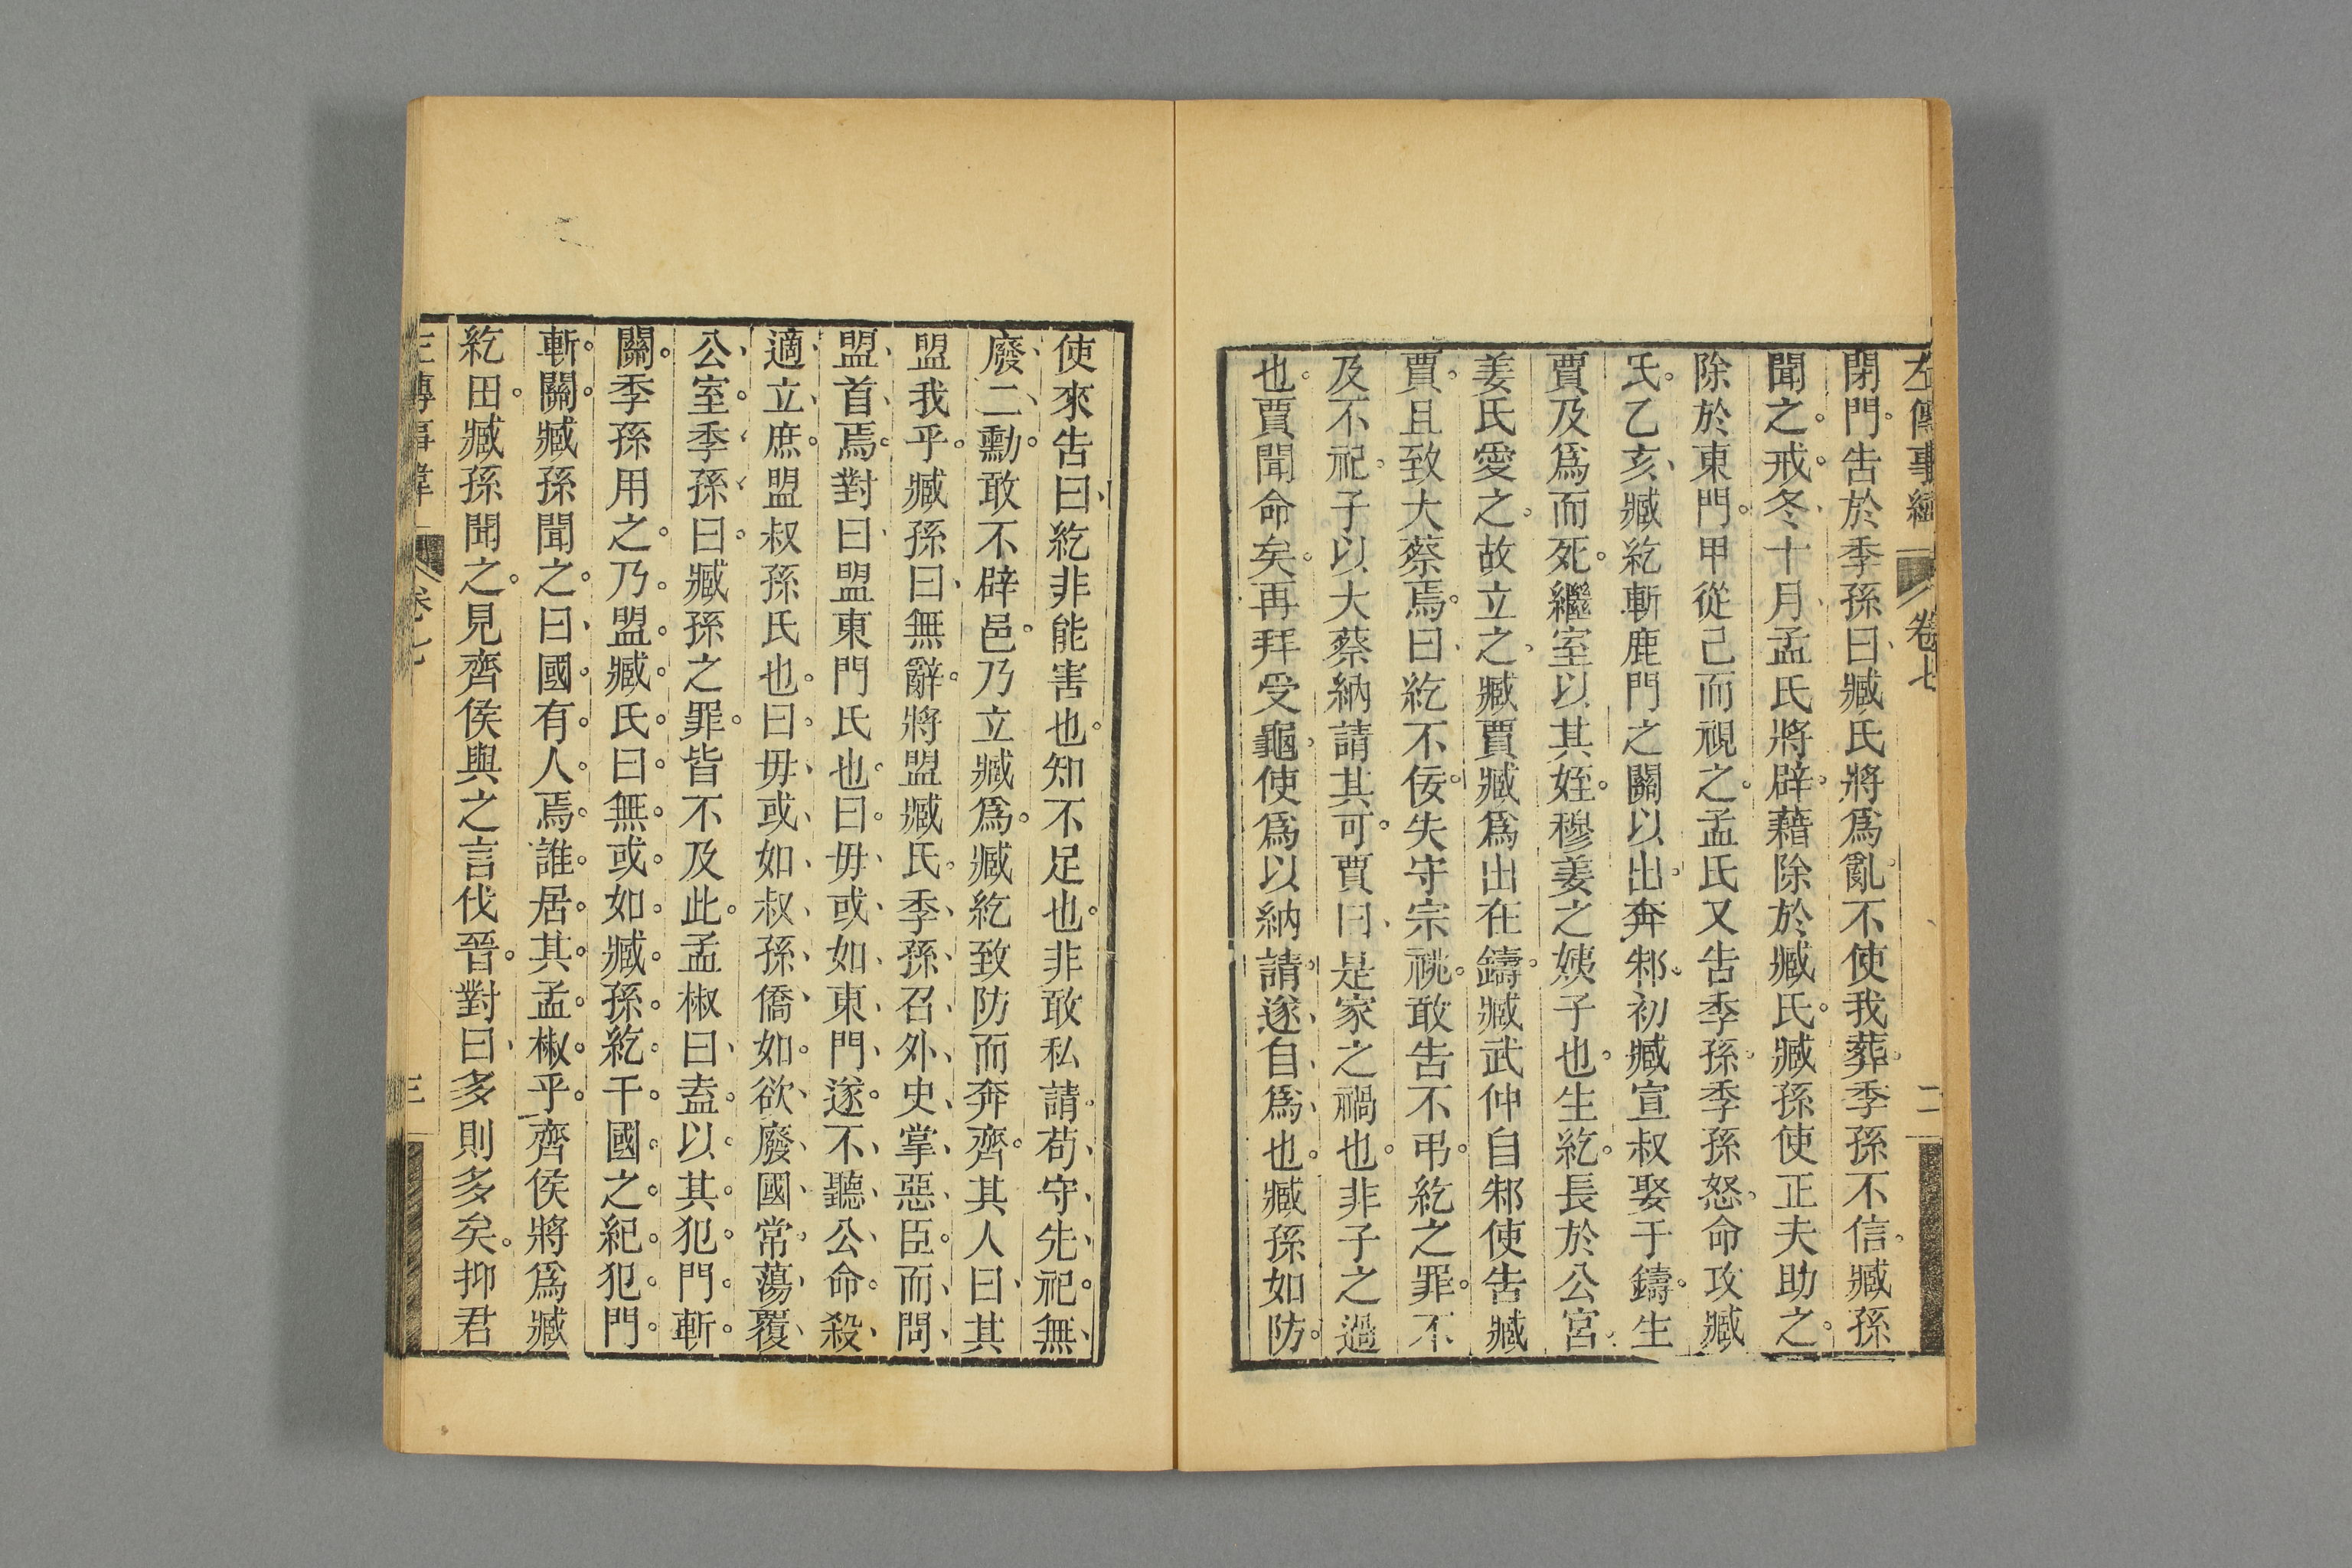 左傳事緯 卷七 二
閉門告於季孫曰臧氏將爲亂不使我葬季孫不信臧孫
聞之戒冬十月孟氏將辟藉除於臧氏臧孫使正夫助之
除於東門甲從己而視之孟氏又告季孫季孫怒命攻臧
氏乙亥臧紇斬鹿門之關以出奔邾初臧宣叔娶于鑄生
賈及爲而死繼室以其姪穆姜之姨子也生紇長於公宮
姜氏愛之故立之臧賈臧爲出在鑄臧武仲自邾使告臧
賈且致大蔡焉曰紇不佞失守宗祧敢告不弔紇之罪不
及不祀子以大蔡納請其可賈曰是家之禍也非子之過
也賈聞命矣再拜受龜使爲以納請遂自爲也臧孫如防
使來告曰紇非能害也知不足也非敢私請苟守先祀無
廢二勳敢不辟邑乃立臧爲臧紇致防而奔齊其人曰其
盟我乎臧孫曰無辭將盟臧氏季孫召外史掌惡臣而問
盟首焉對曰盟東門氏也曰毋或如東門遂不聽公命殺
適立庶盟叔孫氏也曰毋或如叔孫僑如欲廢國常蕩覆
公室季孫曰臧孫之罪皆不及此孟椒曰盍以其犯門斬
關季孫用之乃盟臧氏曰無或如臧孫紇干國之紀犯門
斬關臧孫聞之曰國有人焉誰居其孟椒乎齊侯將爲臧
紇田臧孫聞之見齊侯與之言伐晉對曰多則多矣抑君
左傳事緯 卷七 三